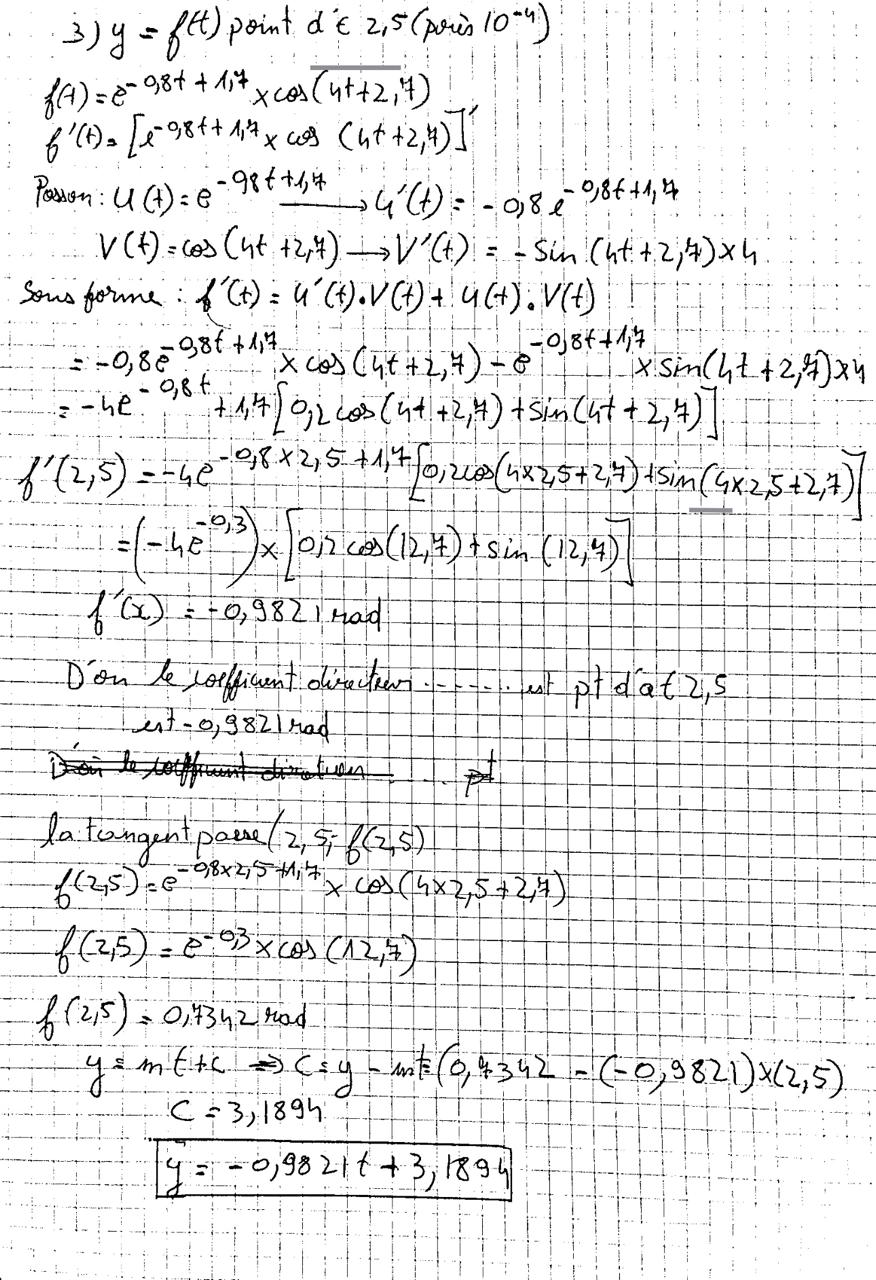 3) y = f(t) point d'∈ 2,5 (près 10⁻⁴)
f(t) = e^(-0,8t + 1,7) × cos(4t+2,7)
f'(t) = [e^(-0,8t + 1,7) × cos (4t+2,7)]'
Posson : U(t) = e^(-0,8t+1,7) ⟶ U'(t) = -0,8 e^(-0,8t+1,7)
V(t) = cos(4t +2,7) ⟶ V'(t) = - Sin (4t+2,7) × 4
Sous forme : f'(t) = U'(t).V(t) + U(t).V(t)
= -0,8e^(-0,8t+1,7) × cos(4t+2,7) - e^(-0,8t+1,7) × sin(4t+2,7)×4
= -4e^(-0,8t + 1,7) [0,2cos(4t+2,7) + sin(4t+2,7)]
f'(2,5) = -4e^(-0,8×2,5+1,7) [0,2cos(4×2,5+2,7)+sin(4×2,5+2,7)]
= (-4e^(-0,3)) × [0,2 cos(12,7) + sin (12,7)]
f'(x) = -0,9821 rad
D'ou le coefficient directeur ........ est pt d'a t 2,5
est -0,9821 rad
D'où le coefficient directeur ..... pt
la tangent passe (2,5; f(2,5)
f(2,5) = e^(-0,8×2,5+1,7) × cos(4×2,5+2,7)
f(2,5) = e^(-0,3) × cos (12,7)
f(2,5) = 0,7342 rad
y = mt+c ⇒ C = y - mt = (0,7342 - (-0,9821)×(2,5)
C = 3,1894
y = -0,9821t + 3,1894